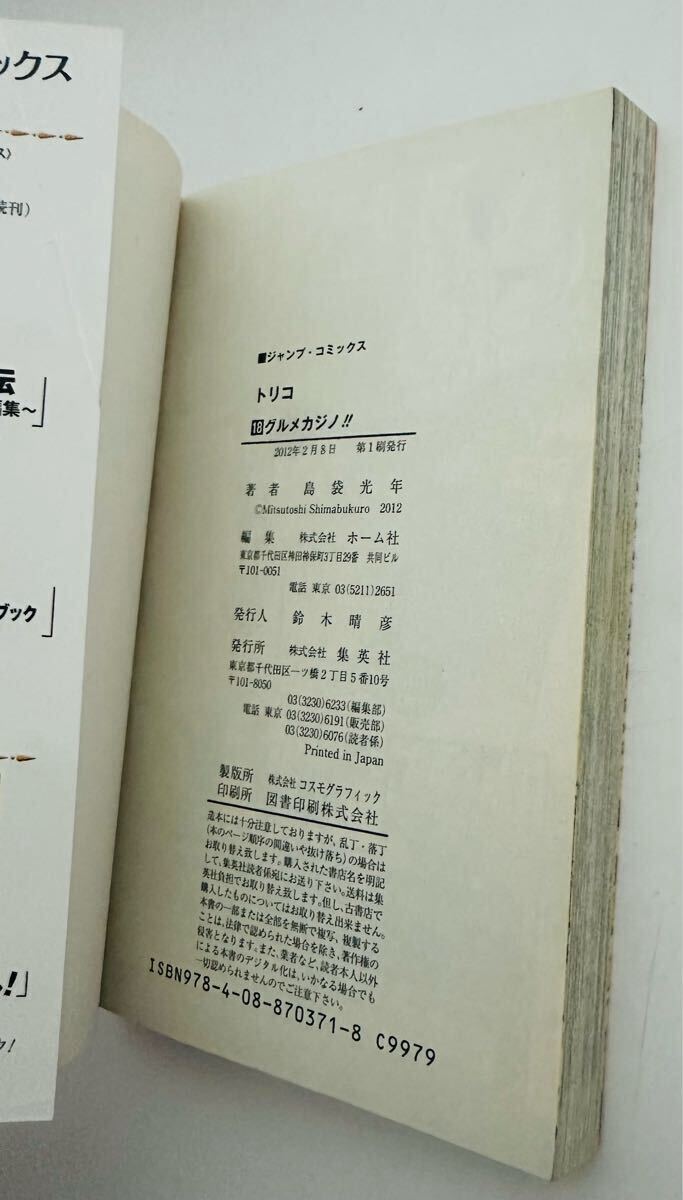 ックス
ス〉
続刊)
伝
集〜」
ブック」
!」
■ジャンプ・コミックス
トリコ
18グルメカジノ!!
2012年2月8日 第1刷発行
著者 島袋光年
©Mitsutoshi Shimabukuro 2012
編集 株式会社 ホーム社
東京都千代田区神田神保町3丁目29番 共同ビル
〒101-0051
電話 東京 03(5211)2651
発行人 鈴木晴彦
発行所 株式会社 集英社
東京都千代田区一ツ橋2丁目5番10号
〒101-8050
03(3230)6233(編集部)
電話 東京 03(3230)6191(販売部)
03(3230)6076(読者係)
Printed in Japan
製版所 株式会社 コスモグラフィック
印刷所 図書印刷株式会社
造本には十分注意しておりますが、乱丁・落丁
(本のページ順序の間違いや抜け落ち)の場合は
お取り替え致します。購入された書店名を明記
して、集英社読者係宛にお送り下さい。送料は集
英社負担でお取り替え致します。但し、古書店で
購入したものについてはお取り替え出来ません。
本書の一部または全部を無断で複写、複製する
ことは、法律で認められた場合を除き、著作権の
侵害となります。また、業者など、読者本人以外
による本書のデジタル化は、いかなる場合でも
一切認められませんのでご注意下さい。
ISBN978-4-08-870371-8 C9979